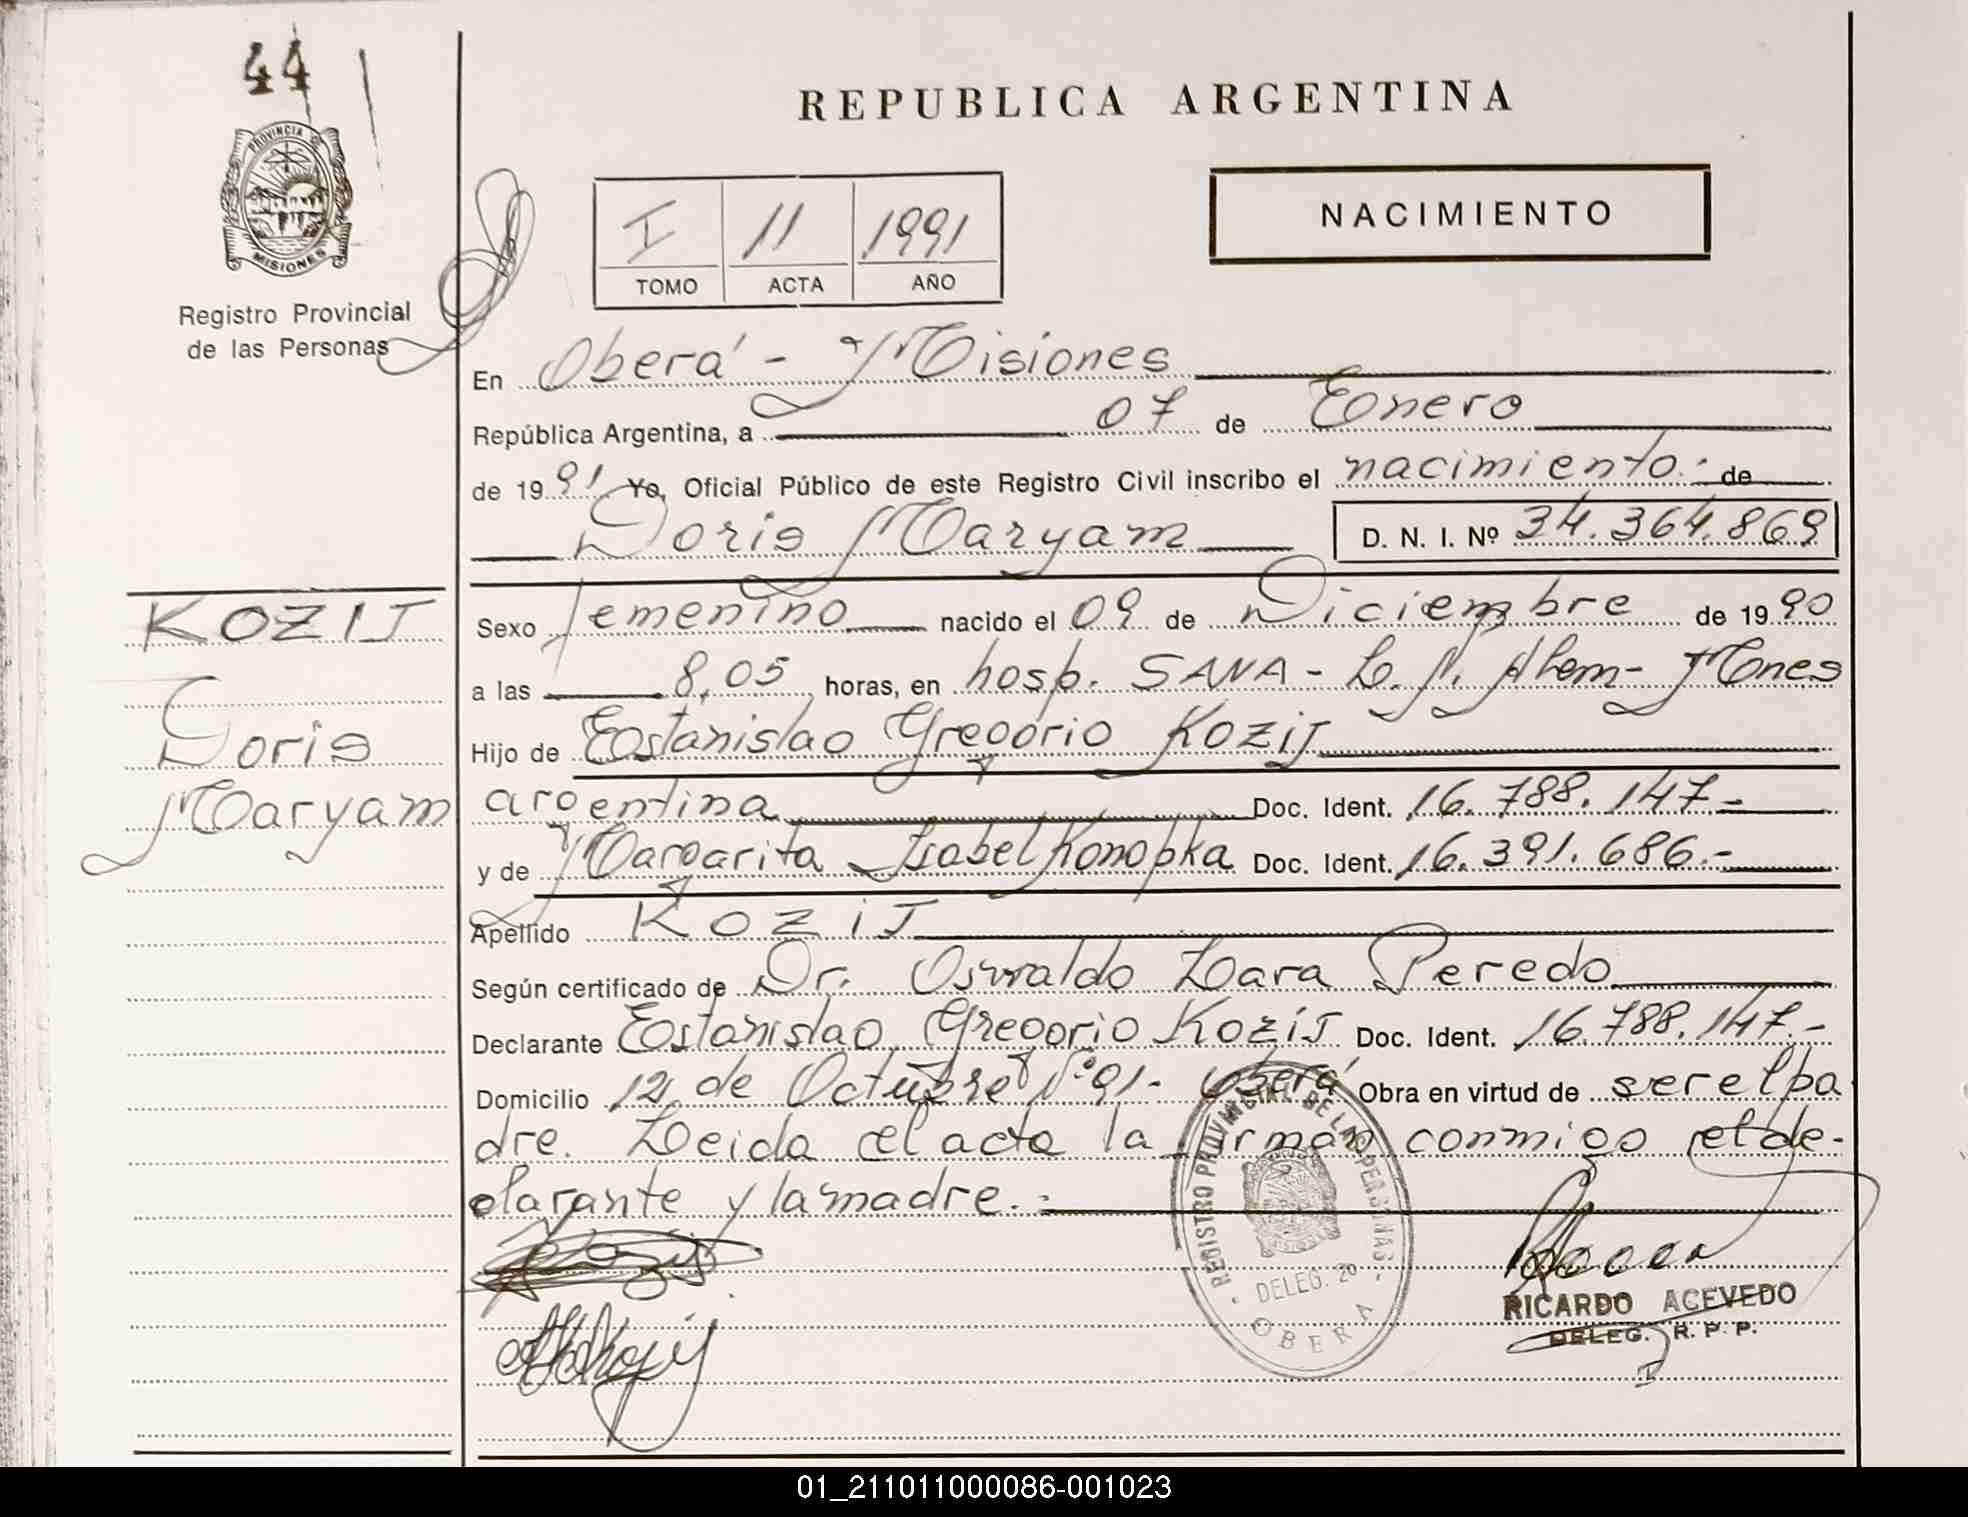 44
PROVINCIA DE
MISIONES
Registro Provincial
de las Personas
REPUBLICA ARGENTINA
I 11 1991
TOMO ACTA AÑO
NACIMIENTO
En Oberá - Misiones
República Argentina, a 07 de Enero
de 1991 Yo, Oficial Público de este Registro Civil inscribo el nacimiento.- de
Doris Maryam D. N. I. Nº 34.364.869
KOZIJ
Doris
Maryam
Sexo femenino nacido el 09 de Diciembre de 1990
a las 8,05 horas, en hosp. SANA - L. N. Alem - Mones
Hijo de Estanislao Gregorio Kozij
argentina Doc. Ident. 16.788.147.-
y de Margarita Isabel Konopka Doc. Ident. 16.391.686.-
Apellido KOZIJ
Según certificado de Dr. Osvaldo Lara Peredo
Declarante Estanislao Gregorio Kozij Doc. Ident. 16.788.147.-
Domicilio 12 de Octubre Nº 91 - Oberá Obra en virtud de ser el pa-
dre. Leida el acta la firman conmigo el de-
clarante y la madre.-
REGISTRO PROVINCIAL DE LAS PERSONAS
DELEG. 20
OBERA
RICARDO ACEVEDO
DELEG. R. P. P.
01_211011000086-001023